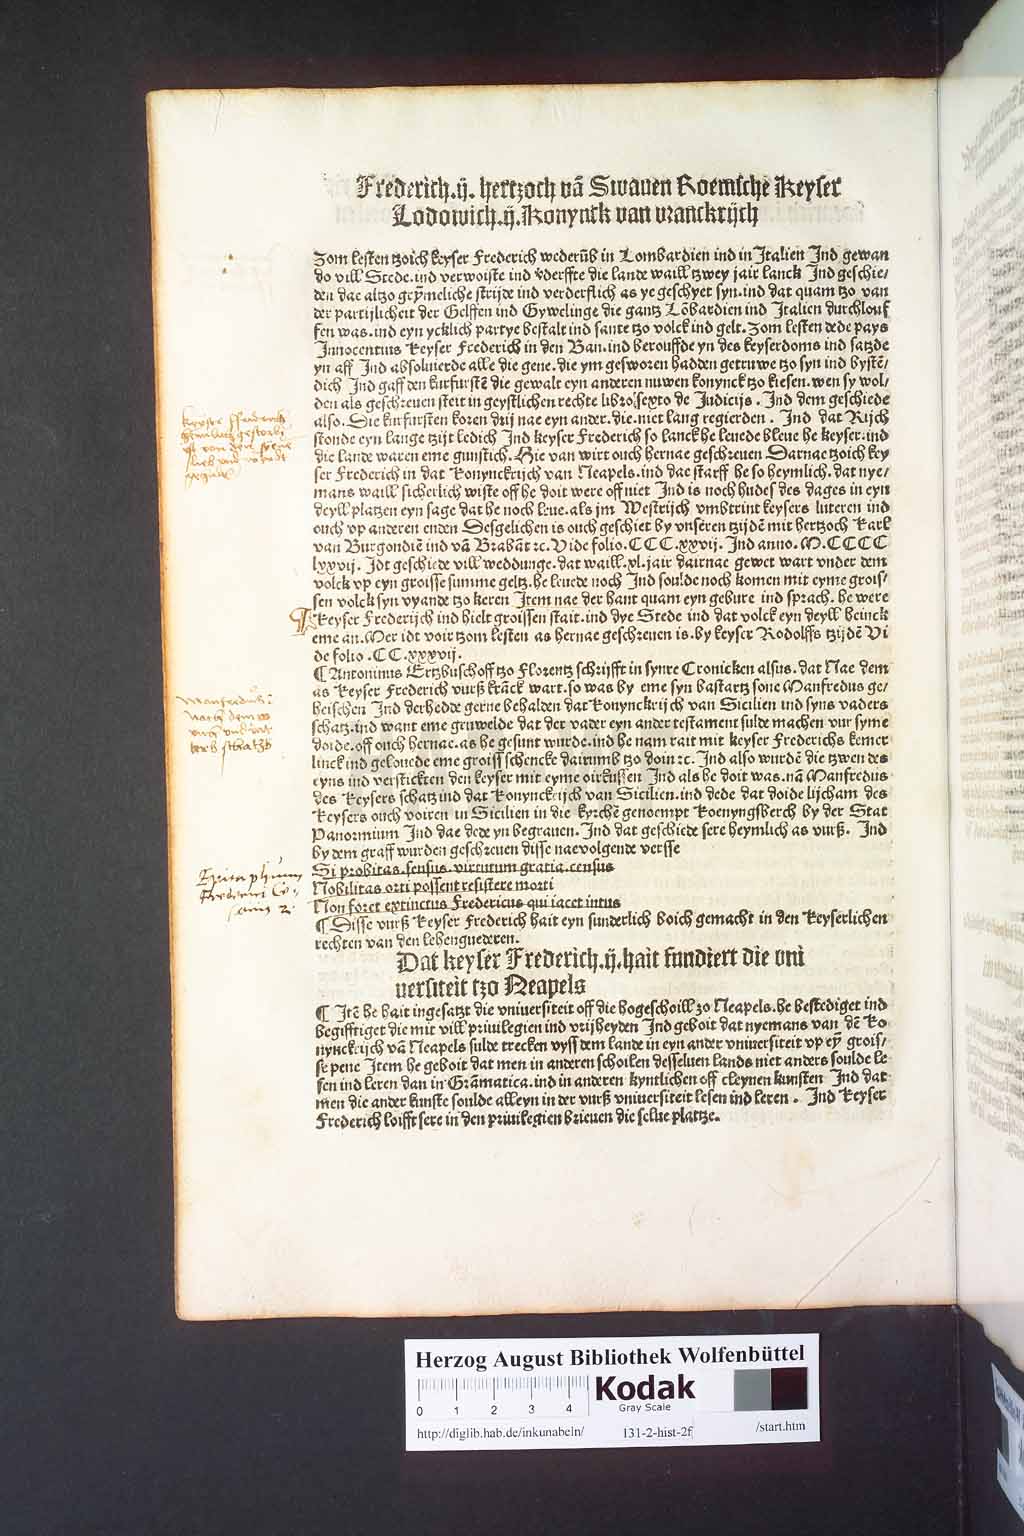 Frederich.ij. hertzoch vā Swauen Roemsche Keyser
Lodowich.ij. Konynck van vranckrijch
Zom lesten tzoich keyser Frederich wederūb in Lombardien ind in Italien Ind gewan
do vill Stede.ind verwoiste ind v̓derffte die lande waill tzwey jair lanck Ind geschie/
den dae altzo grȳmeliche strijde ind verderflich as ye geschyet syn.ind dat quam tzo van
der partijlicheit der Gelffen ind Gywelinge die gantz Lōbardien ind Italien durchlouf
fen was.ind eyn ycklich partye bestalt ind sante tzo volck ind gelt. Zom lesten dede pays
Innocentius Keyser Frederich in den Ban.ind berouffde yn des keyserdoms ind satzde
yn aff Ind absoluierde alle die gene.die ym gesworen hadden getruwe tzo syn ind bystē/
dich Ind gaff den kurfurstē die gewalt eyn anderen nuwen konynck tzo kiesen.wen sy wol/
den als geschreuen steit in geystlichen rechte libro sexto de Iudicijs. Ind dem geschiede
also. Die kurfursten koren drij nae eyn ander.die niet lang regierden. Ind dat Rijch
stonde eyn lange tzijt ledich Ind keyser Frederich so lanck he leuede bleue he keyser.ind
die lande waren eme gunstich. Hie van wirt ouch hernae geschreuen Darnae tzoich key
ser Frederich in dat Konynckrijch van Neapels.ind dae starff he so heymlich.dat nye/
mans waill sicherlich wiste off he doit were off niet Ind is noch hudes des dages in eyn
deyll platzen eyn sage dat he noch leue.als jm Westrijch vmbtrint keysers luteren ind
ouch vp anderen enden Desgelichen is ouch geschiet by vnseren tzijdē mit hertzoch Karl
van Burgondiē ind vā Brabāt ꝛc. Vide folio.CCC.xxvij. Ind anno.M.CCCC
lxxvij. Idt geschiede vill weddunge.dat waill.xl.jair dairnae gewet wart vnder dem
volck vp eyn groisse summe geltz.he leuede noch Ind soulde noch komen mit eyme grois/
sen volck syn vyande tzo keren Item nae der hant quam eyn gebure ind sprach. he were
Keyser Frederijch ind hielt groissen stait.ind dye Stede ind dat volck eyn deyll heinck
eme an. Mer idt voir tzom lesten as hernae geschreuen is.by keyser Rodolffs tzijdē Vi
de folio.CC.xxxvij.
¶ Antoninus Ertzbuschoff tzo Florentz schrijfft in synre Cronicken alsus.dat Nae dem
as Keyser Frederich vurß krāck wart.so was by eme syn bastartz sone Manfredus ge/
heischen Ind der hedde gerne behalden dat Konynckrijch van Sicilien ind syns vaders
schatz.ind want eme gruwelde dat der vader eyn ander testament sulde machen vur syme
doide.off ouch hernae.as he gesunt wurde.ind he nam rait mit keyser Frederichs kemer
linck ind gelouede eme groiss schencke dairumb tzo doin ꝛc. Ind also wurdē die tzwen des
eyns ind versticten den keyser mit eyme oirkussen Ind als he doit was.nā Manfredus
des Keysers schatz ind dat Konynckrijch van Sicilien.ind dede dat doide lijcham des
Keysers ouch voiren in Sicilien in die kyrchē genoempt Koenyngsberch by der Stat
Panormium Ind dae dede yn begrauen. Ind dat geschiede sere heymlich as vurß. Ind
by dem graff wurden geschreuen disse naevolgende versse
Si probitas.sensus.virtutum gratia.census
Nobilitas orti possent resistere morti
Non foret extinctus Fredericus qui iacet intus
¶ Disse vurß Keyser Frederich hait eyn sunderlich boich gemacht in den Keyserlichen
rechten van den lehenguederen.
Dat keyser Frederich.ij.hait fundiert die vni
uersiteit tzo Neapels
¶ Itē he hait ingesatzt die vniuersiteit off die hogeschoill zo Neapels.he bestediget ind
begifftiget die mit vill priuilegien ind vrijheyden Ind geboit dat nyemans van dē Ko
nynckrijch vā Neapels sulde trecken vyss dem lande in eyn ander vniuersiteit vp eȳ grois/
se pene Item he geboit dat men in anderen schoilen desseluen lands niet anders soulde le
sen ind leren dan in Grāmatica.ind in anderen kyntlichen off cleynen kunsten Ind dat
men die ander kunste soulde alleyn in der vurß vniuersiteit lesen ind leren. Ind Keyser
Frederich loifft sere in den priuilegien brieuen die selue platze.
Manfredus
Epitaphium
Frederici
2
Herzog August Bibliothek Wolfenbüttel
0 1 2 3 4
Kodak
Gray Scale
http://diglib.hab.de/inkunabeln/ 131-2-hist-2f /start.htm